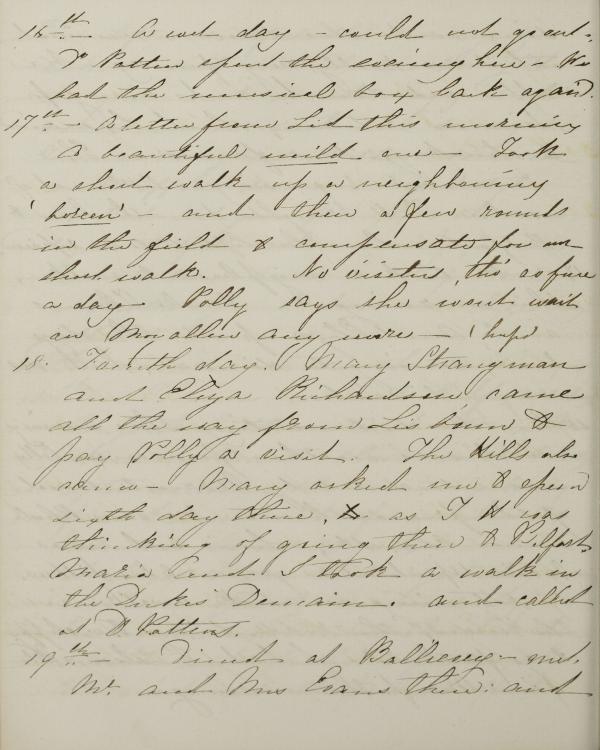 16th — A wet day — could not go out.
Dr Patten spent the evening here — We
had the musical box back again.
17th — A letter from Lid this morning
A beautiful mild one — Took
a short walk up a neighbouring
'boreen' — and then a few rounds
in the field to compensate for our
short walk. No visitors, tho' so fine
a day — Polly says she wont wait
on any more — I hope
18. Fourth day. Mary Strangman
and Eliza Richardson came
all the way from Lisburn to
pay Polly a visit. The Hills also
came — Mary asked me to spend
sixth day there, as I was
thinking of going then to Belfast.
Maria and I took a walk in
the Dukes Demain. and called
at D. Pattens.
19th — Dined at — met
Mr. and Mrs Evans there: and